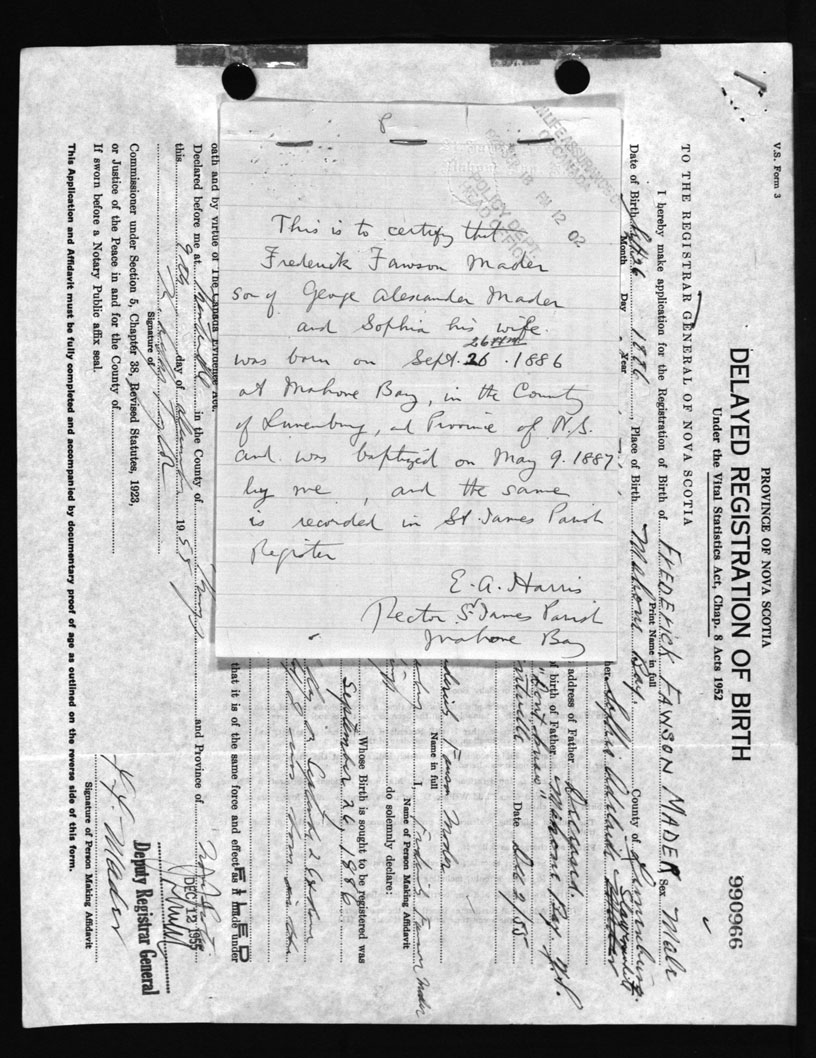 8
LIFE ASSURANCE
OF CANADA
18 PM 12 02
POLICY DEPT.
HEAD OFFICE
This is to certify that
Frederick Fawson Mader
son of George Alexander Mader
and Sophia his wife.
26 HM
was born on Sept. 26. 1886
at Mahone Bay, in the County
of Lunenburg, and Province of N.S.
and was baptized on May 9. 1887
by me, and the same
is recorded in St. James Parish
Register
E. A. Harris
Rector St James Parish
Mahone Bay
V.S. Form 3
PROVINCE OF NOVA SCOTIA
DELAYED REGISTRATION OF BIRTH
990966
Under the Vital Statistics Act, Chap. 8 Acts 1952
TO THE REGISTRAR GENERAL OF NOVA SCOTIA
I hereby make application for the Registration of Birth of FREDERICK FAWSON MADER Sex Male
Print Name in full
Date of Birth Sept 26 1886, Place of Birth Mahone Bay. County of Lunenburg.
Month Day Year
Sophia Adelaide
address of Father Deceased.
birth of Father Mahone Bay, N.S.
"Don't know"
Date Dec 9, 55
Fawson Mader
Name in full
I, Frederick Fawson Mader
Name of Person Making Affidavit
do solemnly declare:
Whose Birth is sought to be registered was
September 26, 1886
that it is of the same force and effect as if made under
oath and by virtue of The Canada Evidence Act.
FILED
DEC 12 1955
Declared before me at Kentville in the County of Kings and Province of Nova Scotia
this 9th day of December 1955
Signature of
Deputy Registrar General
Commissioner under Section 5, Chapter 38, Revised Statutes, 1923,
or Justice of the Peace in and for the County of
If sworn before a Notary Public affix seal.
F. F. Mader
Signature of Person Making Affidavit
This Application and Affidavit must be fully completed and accompanied by documentary proof of age as outlined on the reverse side of this form.